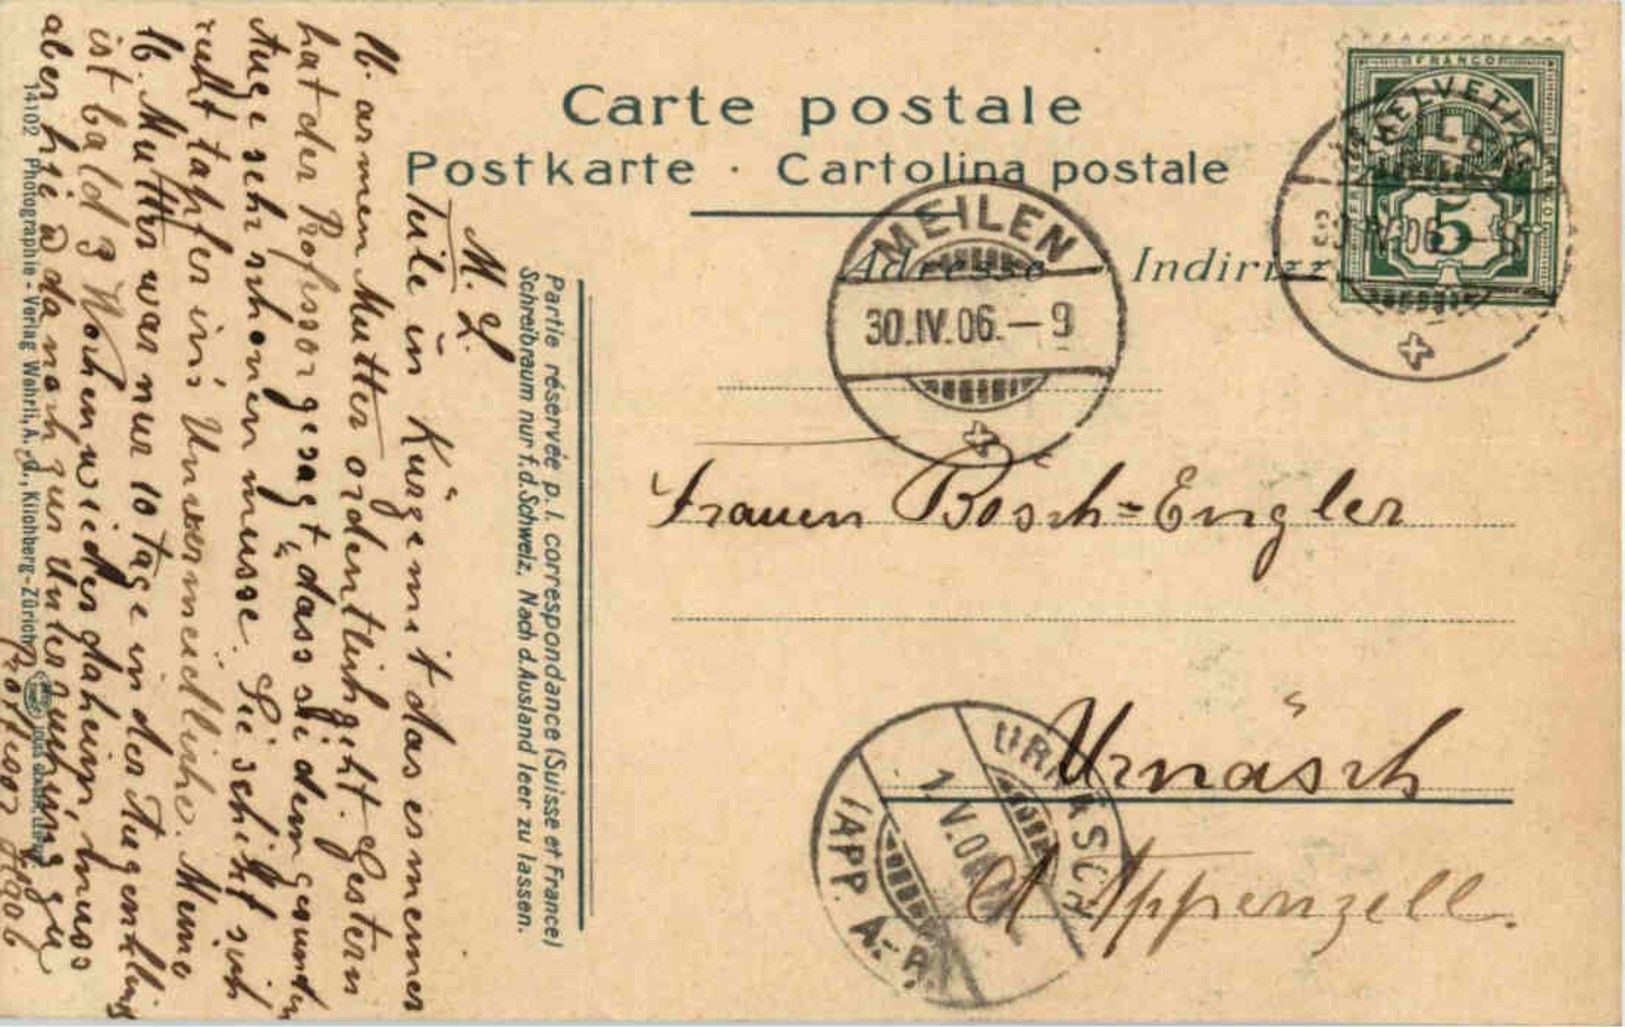 Carte postale
Postkarte · Cartolina postale
Adresse
Indirizz
FRANCO
HELVETIA
5
MEILEN
30.IV.06.-9
Frauen Bösch=Engler
Urnäsch
A Appenzell.
URNÄSCH
1.V.06
(APP. A.-R.
Partie réservée p. l. correspondance (Suisse et France)
Schreibraum nur f. d. Schweiz, Nach d. Ausland leer zu lassen.
M. L.
Teile in Kürze mit das es meiner
lb. armen Mutter ordentlich geht. Gestern
hat der Professor gesagt, dass sie dem gesunden
Auge sehr schonen müsse. Sie schickt sich
recht tapfer in's Unvermeidliche. Meine
lb. Mutter war nur 10 Tage in der Augenklinik
ist bald 3 Wochen wieder daheim, muss
aber hie & da noch zur Untersuchung zu
Professor Haab
14102 Photographie-Verlag Wehrli, A.-G., Kilchberg-Zürich